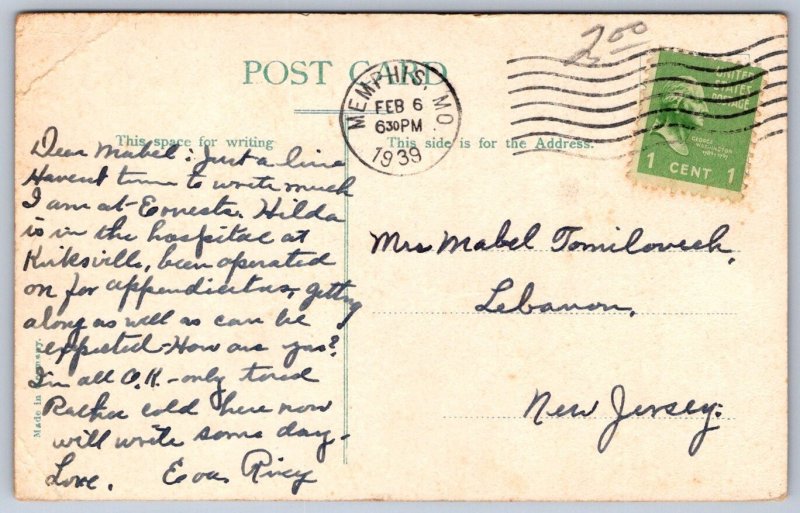 2.00
POST CARD
MEMPHIS, MO.
FEB 6
630PM
1939
UNITED
STATES
POSTAGE
GEORGE
WASHINGTON
1 CENT 1
This space for writing
This side is for the Address.
Dear Mabel: Just a line
Havent time to write much
I am at Ernests. Hilda
is in the hospital at
Kirksville, been operated
on for appendicitus, getting
along as well as can be
expected - How are you?
I'm all O.K. - only tired
Rather cold here now
will write some day -
Love. Eva
Mrs Mabel
Lebanon,
New Jersey.
Made in Germany.